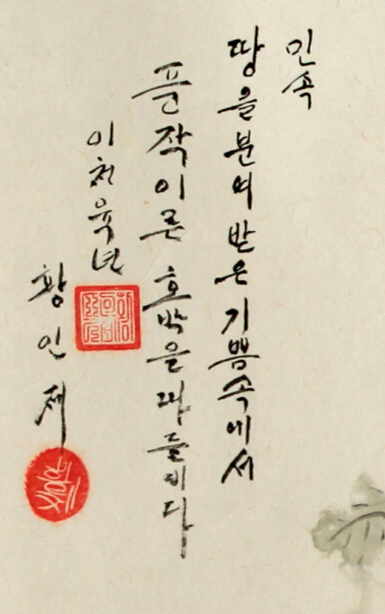 민속
땅을분여받은기쁨속에서
풍작이룬 호박을따들이다
이천육년
황인제